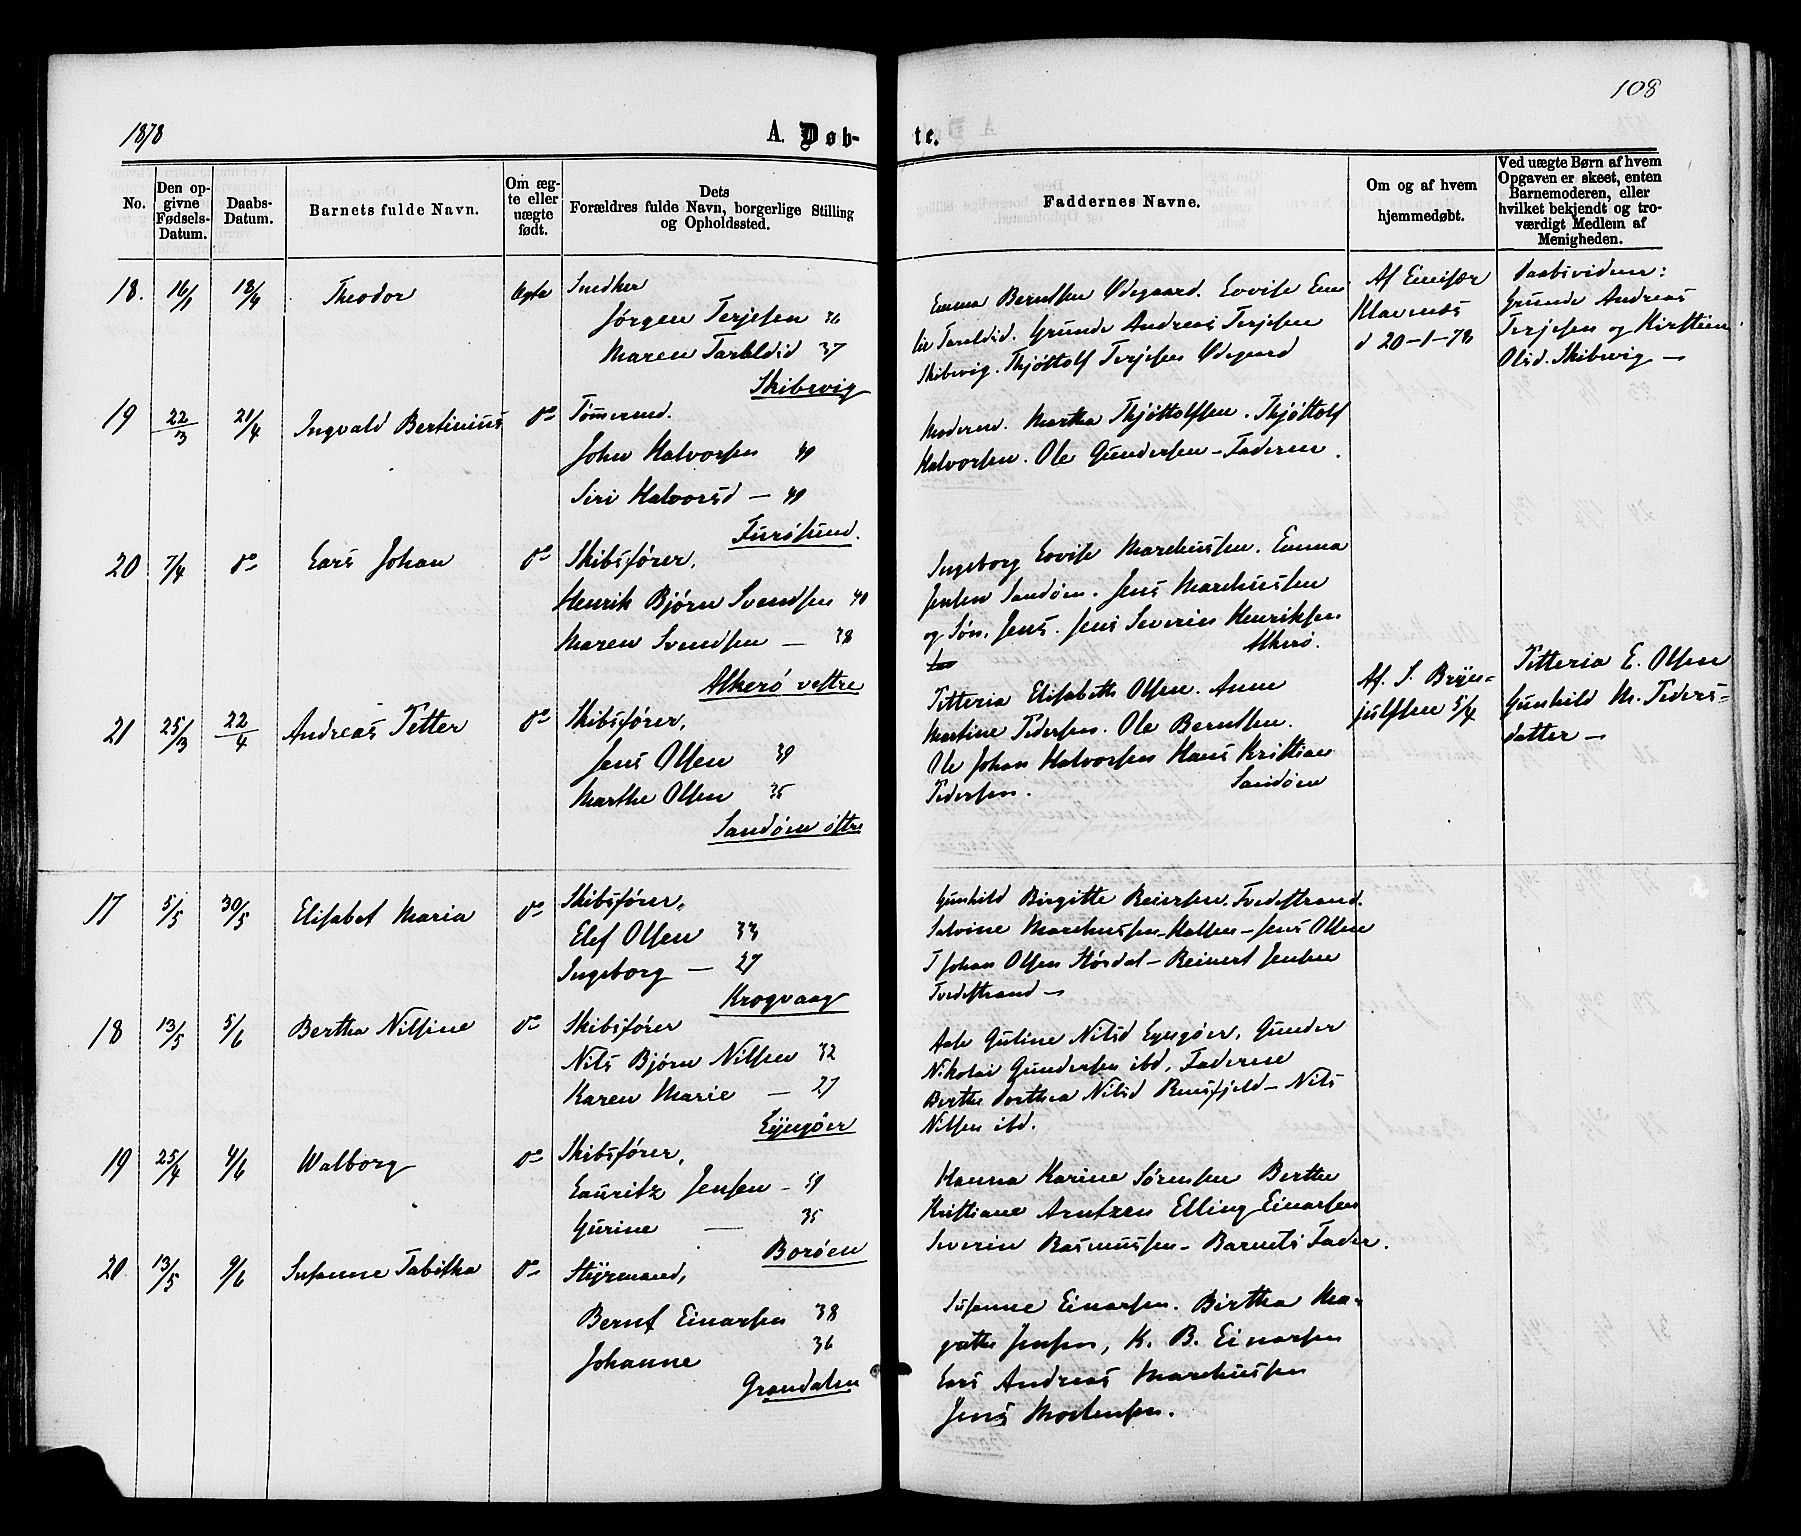 108
1878
A. Døb-
te.
No.
Den op-
givne
Fødsels-
Datum.
Daabs-
Datum.
Barnets fulde Navn.
Om æg-
te eller
uægte
født.
Dets
Forældres fulde Navn, borgerlige Stilling
og Opholdssted.
Faddernes Navne.
Om og af hvem
hjemmedøbt.
Ved uægte Børn af hvem
Opgaven er skeet, enten
Barnemoderen, eller
hvilket bekjendt og tro-
værdigt Medlem af
Menigheden.
18. 16/1 18/4 Theodor Ægte Snedker
Jørgen Terjesen 36
Maren Taraldsd 37
Skibevig
Emma Berntsen Ødegaard. Lovise Em-
lie Taraldsd. Grunde Andreas Terjesen
Skibevig. Thjøttolf Terjesen Ødegaard
Af Enefør
Mavenæs
d 20-1-78
Daabsvidner:
Grunde Andreas
Terjesen og Kirstien
Olsd. Skibevig —
19 22/3 21/4 Ingvald Bertinius do Tømermd.
John Halvorsen 40
Siri Halvorsd — 40
Furøsund.
Moderen. Martha Thjøttolfsen. Thjøttolf
Halvorsen. Ole Gundersen – Faderen.
20 7/4 do Lars Johan do Skibsfører.
Henrik Bjørn Svendsen 40
Maren Svendsen — 38
Alkerø vestre
Ingeborg Lovise Marcussen. Emma
Jensen Sandøen. Jens Marchussen
og Søn, Jens. Jens Severin Henriksen
Alkerø.
21 25/3 22/4 Andreas Petter do Skibsfører,
Jens Olsen 39
Marthe Olsen 35
Sandøen østre
Petteria Elisabeth Olsen. Anne
Martine Pedersen. Ole Berntsen.
Ole Johan Halvorsen Hans Kristian
Pedersen. Sandøen
Af. S. Bryn-
julfsen 5/4
Petteria E. Olsen
Gunhild M. Peders-
datter —
17 5/5 30/5 Elisabet Maria do Skibsfører,
Elef Olsen 33
Ingeborg — 27
Krogvaag
Gunhild Birgitte Reiersen. Tvedestrand.
Selvine Marchussen – Kalsen – Jens Olsen
T Johan Olsen Størdal – Reinert Jensen
Tvedestrand —
18 13/5 5/6 Bertha Nilsine do Skibsfører
Nils Bjørn Nilsen 32
Karen Marie — 27
Lyngøer
Aase Guline Nilsd Lyngøer, Gunder
Nikolai Gundersen ibd, Faderne
Berthe Dorthea Nilsd – Nils
Nilsen ibd.
19 25/4 4/6 Walborg do Skibsfører,
Lauritz Jensen – 39
Gurine — 35
Borøen
Hanna Karine Sørensen Berthe
Kristiane Arntzen Elling Einarsen
Severin Rasmussen – Barnets Fader.
20 13/5 9/6 Susanne Tabitha do Styrmand,
Bernt Einarsen 38
Johanne 36
Grandalen
Susanne Einarsen. Birtha Ma-
grethe Jensen, K. B. Einarsen
Lars Andreas Marchussen
Jens Mortensen.